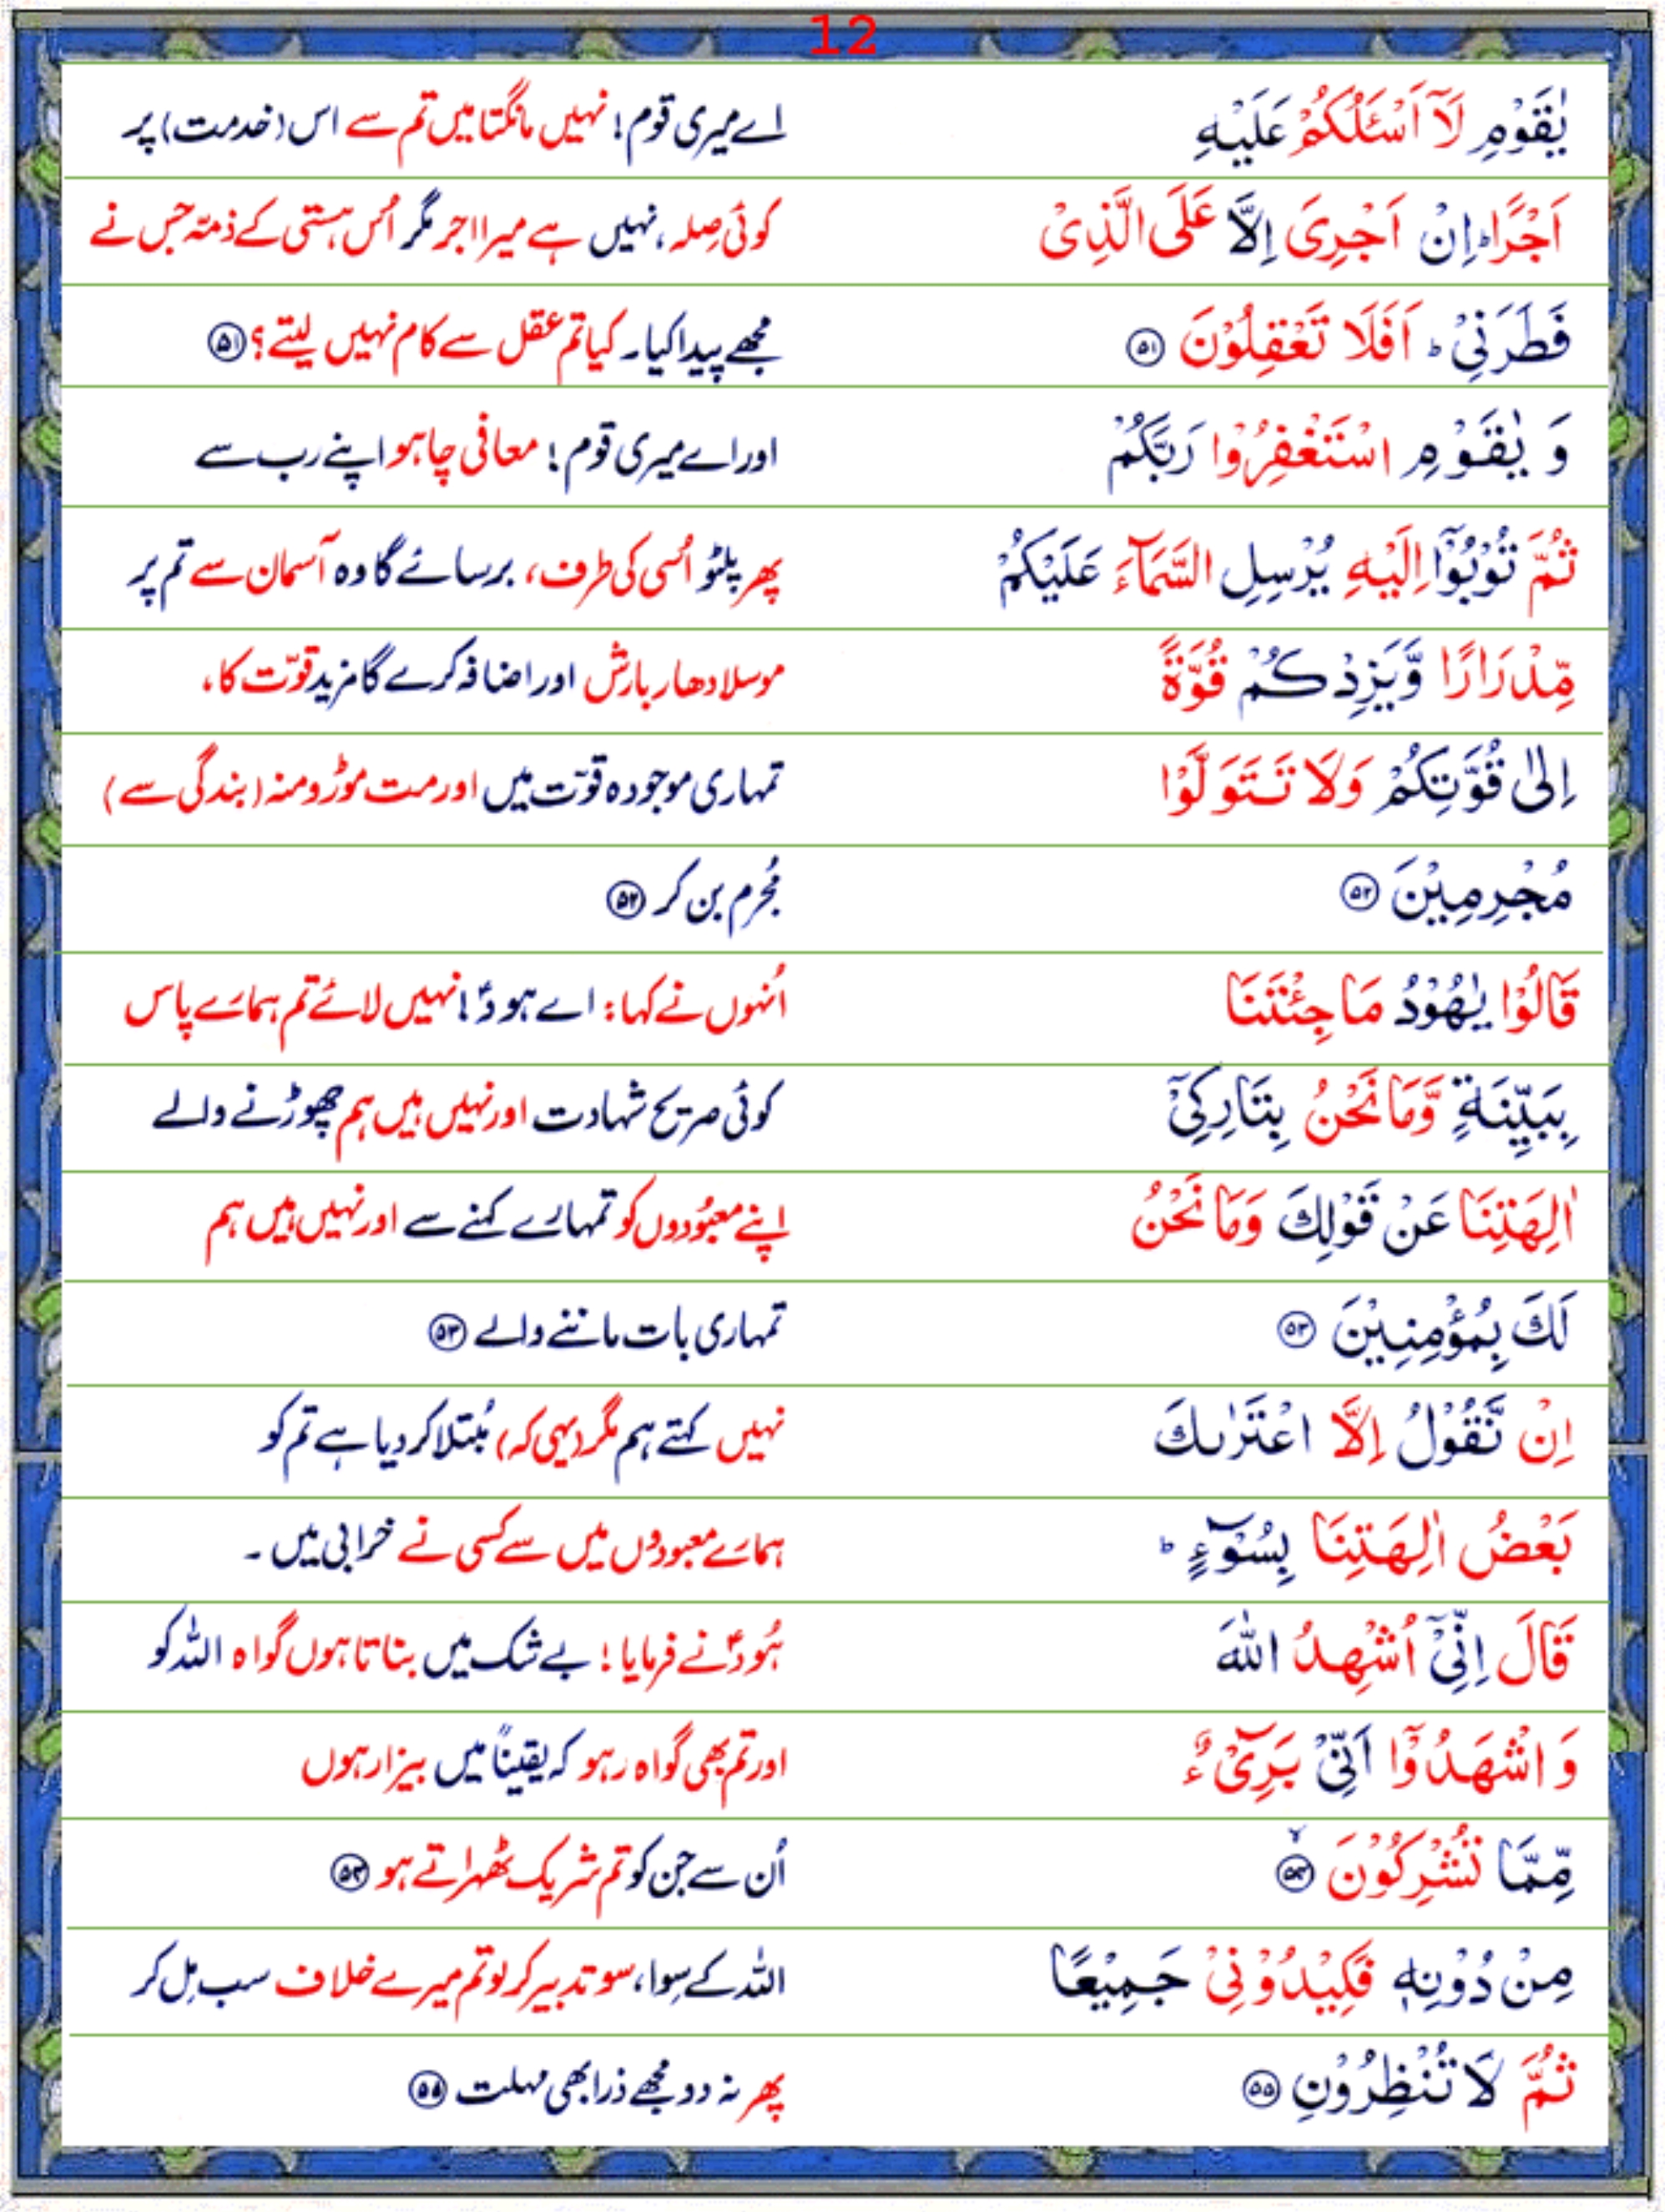 12
یٰقَوْمِ لَاۤ اَسْـَٔلُكُمْ عَلَیْهِ اے میری قوم! نہیں مانگتا میں تم سے اس (خدمت) پر
اَجْرًا ؕ اِنْ اَجْرِیَ اِلَّا عَلَی الَّذِیْ کوئی صِلہ، نہیں ہے میرا اجر مگر اُس ہستی کے ذمّہ جس نے
فَطَرَنِیْ ؕ اَفَلَا تَعْقِلُوْنَ ۵۱ مجھے پیدا کیا۔ کیا تم عقل سے کام نہیں لیتے؟ ۵۱
وَ یٰقَوْمِ اسْتَغْفِرُوْا رَبَّكُمْ اور اے میری قوم! معافی چاہو اپنے رب سے
ثُمَّ تُوْبُوْۤا اِلَیْهِ یُرْسِلِ السَّمَآءَ عَلَیْكُمْ پھر پلٹو اُسی کی طرف، برسائے گا وہ آسمان سے تم پر
مِّدْرَارًا وَّیَزِدْكُمْ قُوَّةً موسلا دھار بارش اور اضافہ کرے گا مزید قوّت کا،
اِلٰی قُوَّتِكُمْ وَلَا تَتَوَلَّوْا تمہاری موجودہ قوّت میں اور مت موڑو منہ (بندگی سے)
مُجْرِمِیْنَ ۵۲ مُجرم بن کر ۵۲
قَالُوْا یٰهُوْدُ مَا جِئْتَنَا اُنہوں نے کہا: اے ہودؑ! نہیں لائے تم ہمارے پاس
بِبَیِّنَةٍ وَّمَا نَحْنُ بِتَارِكِیْۤ کوئی صریح شہادت اور نہیں ہیں ہم چھوڑنے والے
اٰلِهَتِنَا عَنْ قَوْلِكَ وَمَا نَحْنُ اپنے معبُودوں کو تمہارے کہنے سے اور نہیں ہیں ہم
لَكَ بِمُؤْمِنِیْنَ ۵۳ تمہاری بات ماننے والے ۵۳
اِنْ نَّقُوْلُ اِلَّا اعْتَرٰىكَ نہیں کہتے ہم مگر (یہی کہ) مُبتلا کر دیا ہے تم کو
بَعْضُ اٰلِهَتِنَا بِسُوْٓءٍ ؕ ہمارے معبودوں میں سے کسی نے خرابی میں۔
قَالَ اِنِّیْۤ اُشْهِدُ اللّٰهَ ہُودؑ نے فرمایا! بے شک میں بناتا ہوں گواہ اللہ کو
وَ اشْهَدُوْۤا اَنِّیْ بَرِیْٓءٌ اور تم بھی گواہ رہو کہ یقیناً میں بیزار ہوں
مِّمَّا تُشْرِكُوْنَ ۙ ۵۴ اُن سے جن کو تم شریک ٹھہراتے ہو ۵۴
مِنْ دُوْنِهٖ فَكِیْدُوْنِیْ جَمِیْعًا اللہ کے سِوا، سو تدبیر کر لو تم میرے خلاف سب مِل کر
ثُمَّ لَا تُنْظِرُوْنِ ۵۵ پھر نہ دو مجھے ذرا بھی مہلت ۵۵